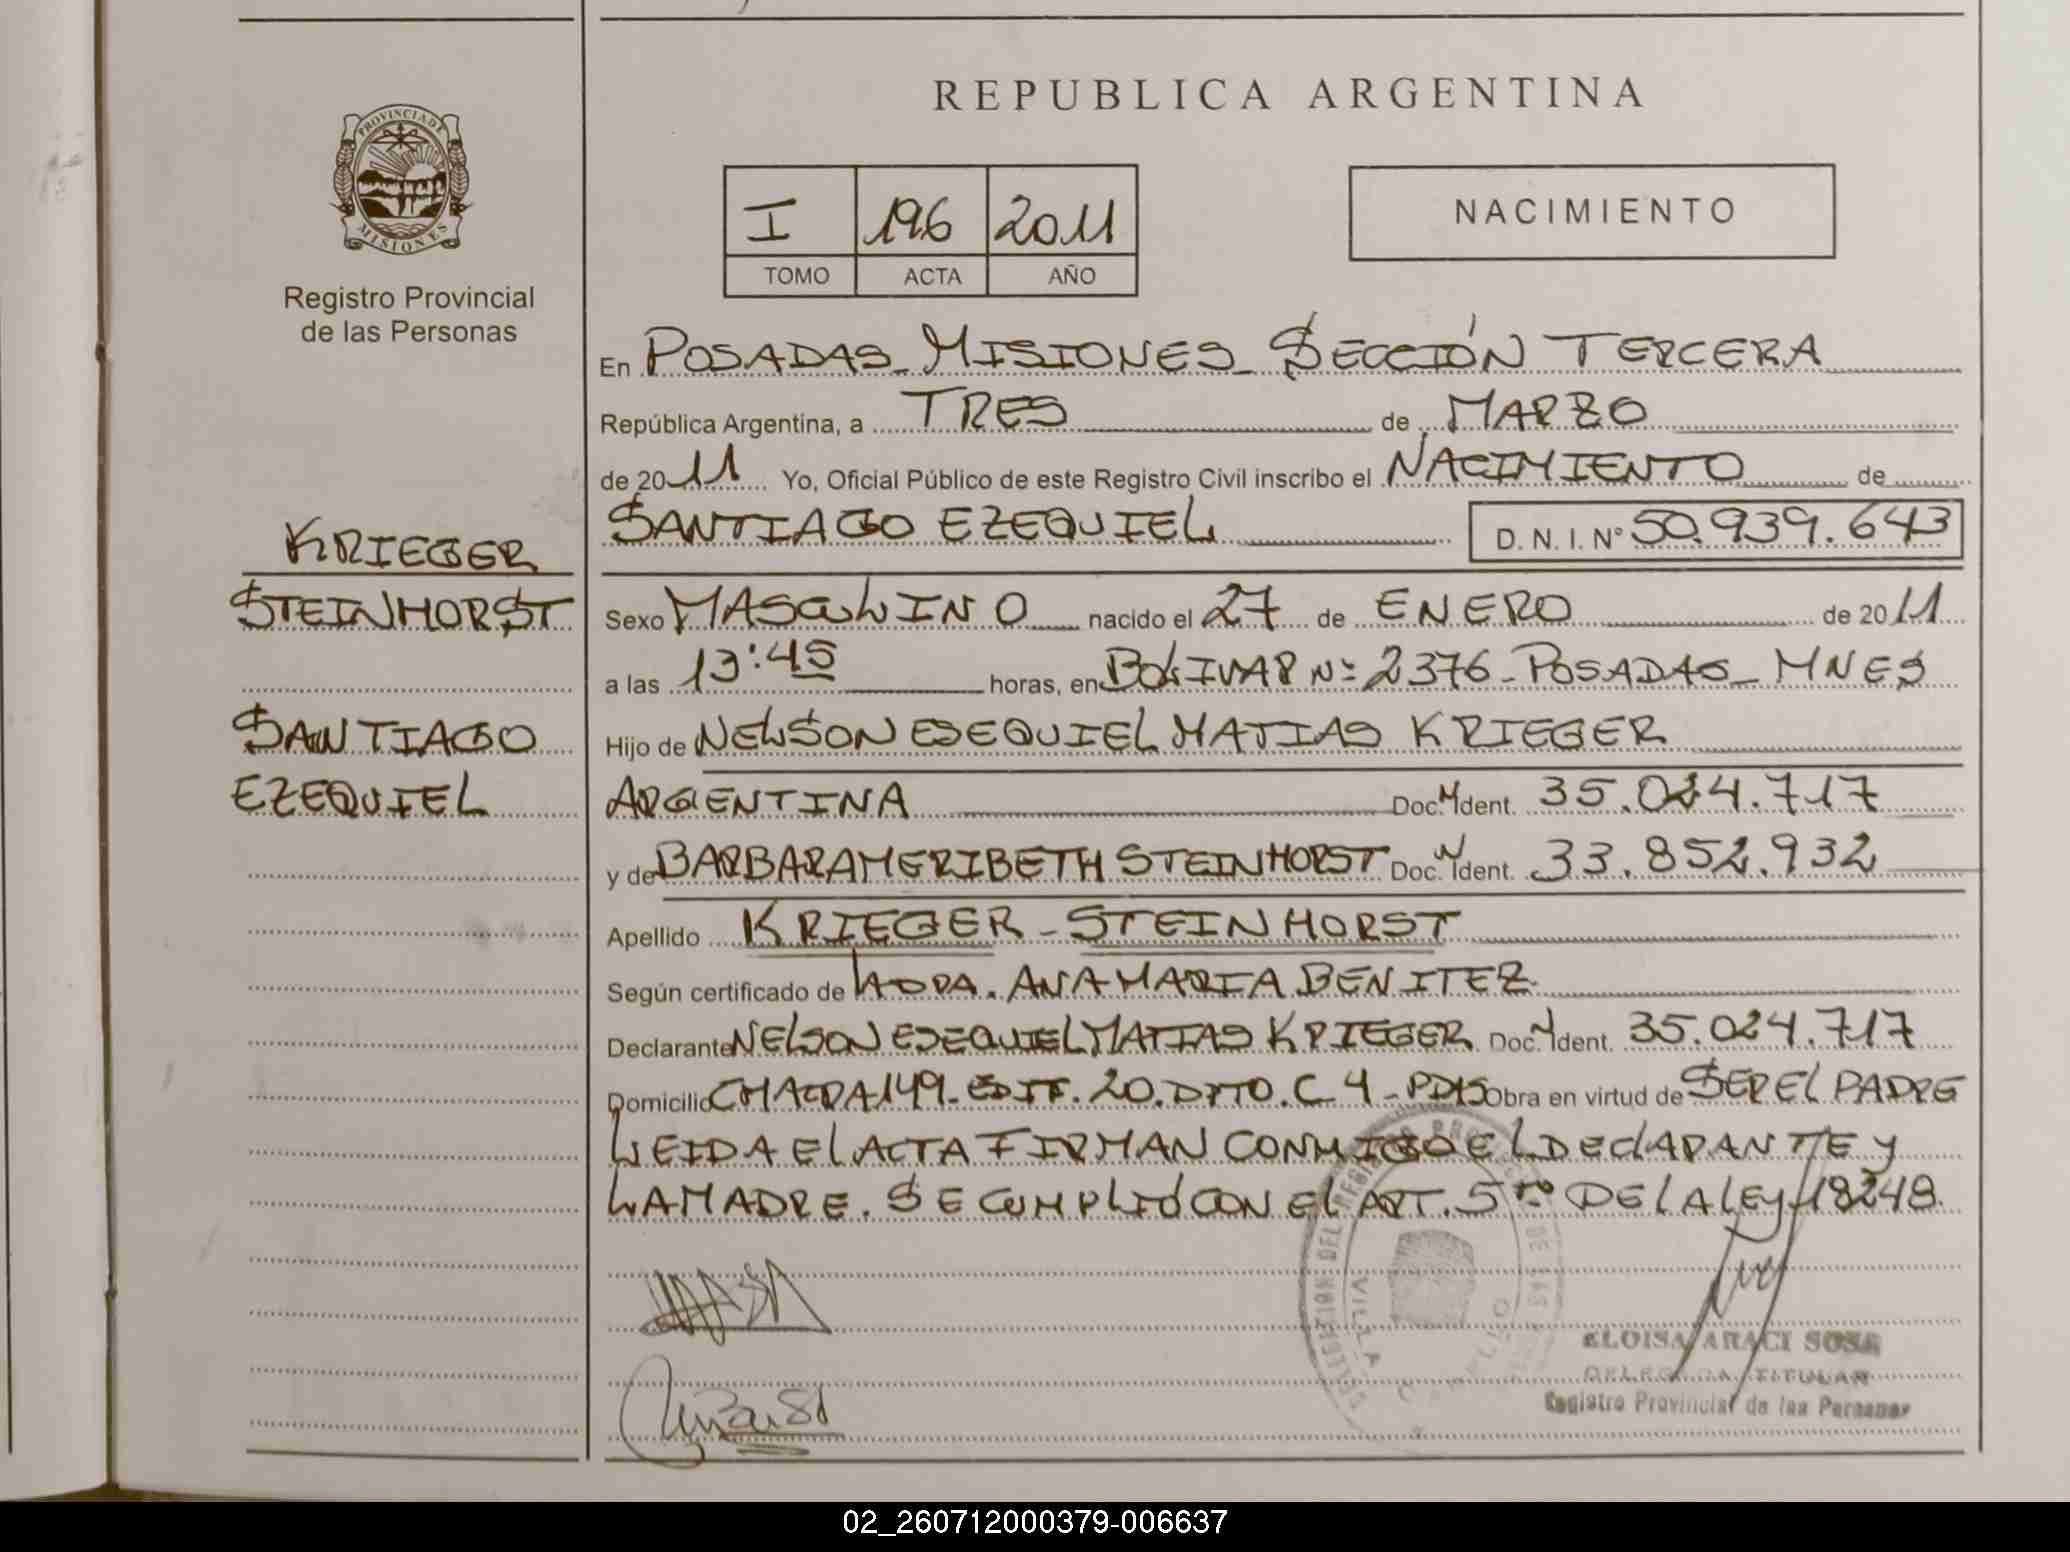 REPUBLICA ARGENTINA
PROVINCIA DE
MISIONES
Registro Provincial
de las Personas
I 196 2011
TOMO ACTA AÑO
NACIMIENTO
En POSADAS_MISIONES_ SECCIÓN TERCERA
República Argentina, a TRES de MARZO
de 2011 Yo, Oficial Público de este Registro Civil inscribo el NACIMIENTO de
SANTIAGO EZEQUIEL D. N. I. N° 50.939.643
KRIEGER
STEINHORST
SANTIAGO
EZEQUIEL
Sexo MASCULINO nacido el 27 de ENERO de 2011
a las 13:45 horas, en BOLIVAR Nº 2376_POSADAS_MNES
Hijo de NELSON ESEQUIEL MATIAS KRIEGER
ARGENTINA Doc. Ident. 35.024.717
y de BARBARA MERIBETH STEINHORST Doc. Ident. 33.852.932
Apellido KRIEGER - STEINHORST
Según certificado de ANA MARIA BENITEZ
Declarante NELSON ESEQUIEL MATIAS KRIEGER Doc. Ident. 35.024.717
Domicilio CHACRA 149. EDIF. 20. DPTO. C 4 - PDAS Obra en virtud de SER EL PADRE
LEIDA EL ACTA FIRMAN CONMIGO EL DECLARANTE y
LA MADRE. SE CUMPLIÓ CON EL ART. 5to DE LA LEY 18248.
ELOISA ARACI SOSA
DELEGADA TITULAR
Registro Provincial de las Personas
02_260712000379-006637